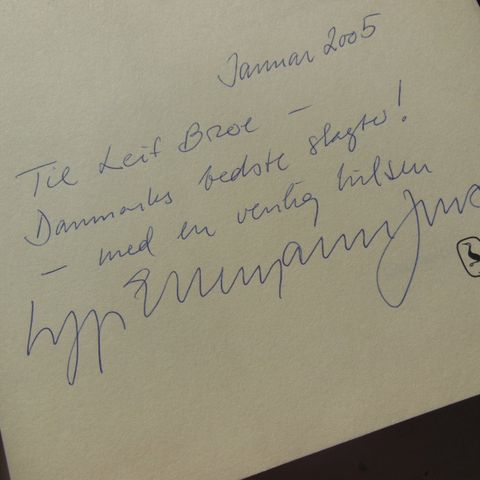 Januar 2005
Til Leif Broe —
Danmarks bedste slagter!
— med en venlig hilsen